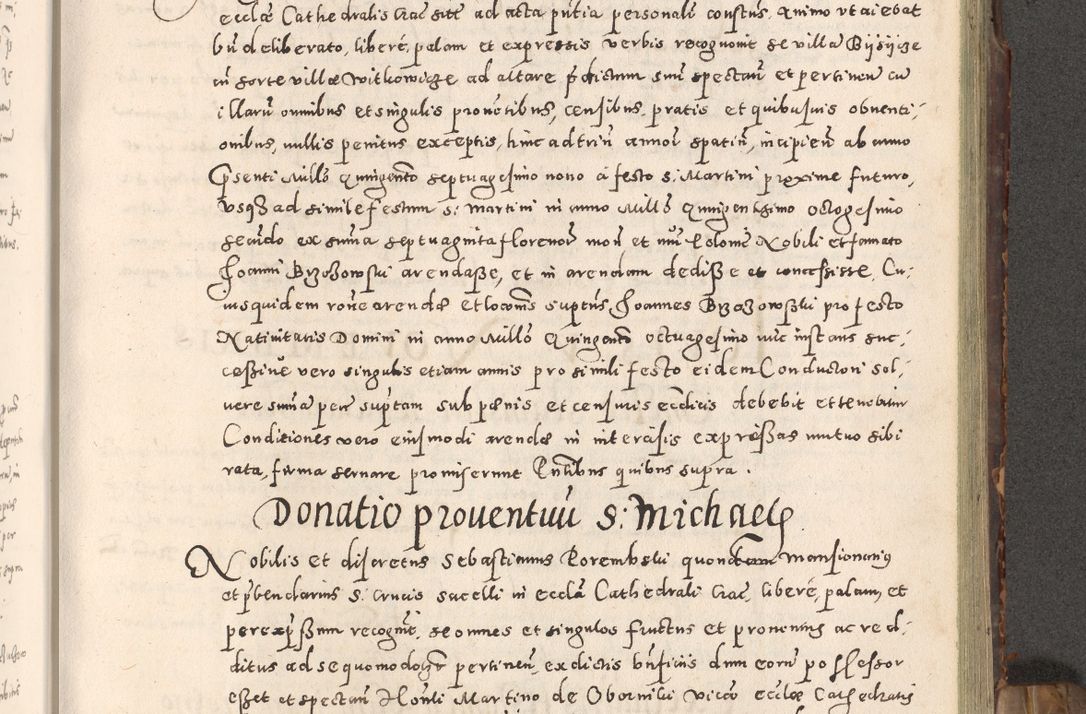 ecclæ Cathedralis Crac site ad acta pñtia personalr constus, animo vt aiebat
bñ deliberato, liberè, palam et expressis verbis recognouit se villã Biÿsicze
cũ sorte villæ Witkowicze ad altare pdictum suũ spectan̄ et pertinen cũ
illarũ omnibus et singulis prouẽtibus, censibus, pratis et quibusuis obuenti-
onibus, nullis penitus exceptis, hinc ad triũ annor spatiũ, incipien̄ ab anno
Psenti Millo Quingento septuagesimo nono à festo s: Martini proxime futuro,
vsq3 ad simile festum s: Martini in anno Millo Quingentesimo octogesimo
secũdo ex suma septuaginta florenor mon et nũi Polonie Nobili et famato
Joanni Brzozowski arendasse, et in arendam dedisse et concessisse, Cu-
iusquidem rõne arendæ et locõnis suptus Joannes Brzozowski pro festo
Natiuitatis Domini in anno Millo Quingento octuagesimo nũc instans suc-
cessiuè vero singulis etiam annis pro simili festo eidem Conductori sol-
uere sumã pecũ suptam sub pænis et censuris ecclicis debebit et tenebitur
Conditiones vero eiusmodi arendæ in intercisis expressas mutuo sibi
rata, firma seruare promiserunt Pntibus quibus supra.
Donatio prouentuũ s: Michaelis
Nobilis et discretus Sebastianus Porembski quondam Mansionarius
et pbendarius s: Crucis sacelli in eccla Cathedrali Crac, liberè, palam, et
per expssum recognit, se omnes et singulos fructus et prouentus ac red-
ditus ad se quomodolibet pertinen, ex dictis bñficiis dum eorũ possessor
esset et spectan Honli Martino de Oborniki vicco ecclæ Cathedralis